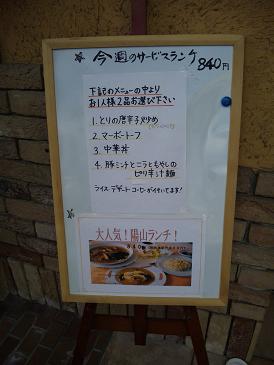 今週のサービスランチ 840円
下記のメニューの中より
お1人様2品お選び下さい
1. とりの唐辛子炒め
2. マーボートーフ
3. 中華丼
4. 豚ミンチとニラともやしの
ピリ辛汁麺
ライス・デザート・コーヒーが付いてます!
大人気!陽山ランチ!
840円